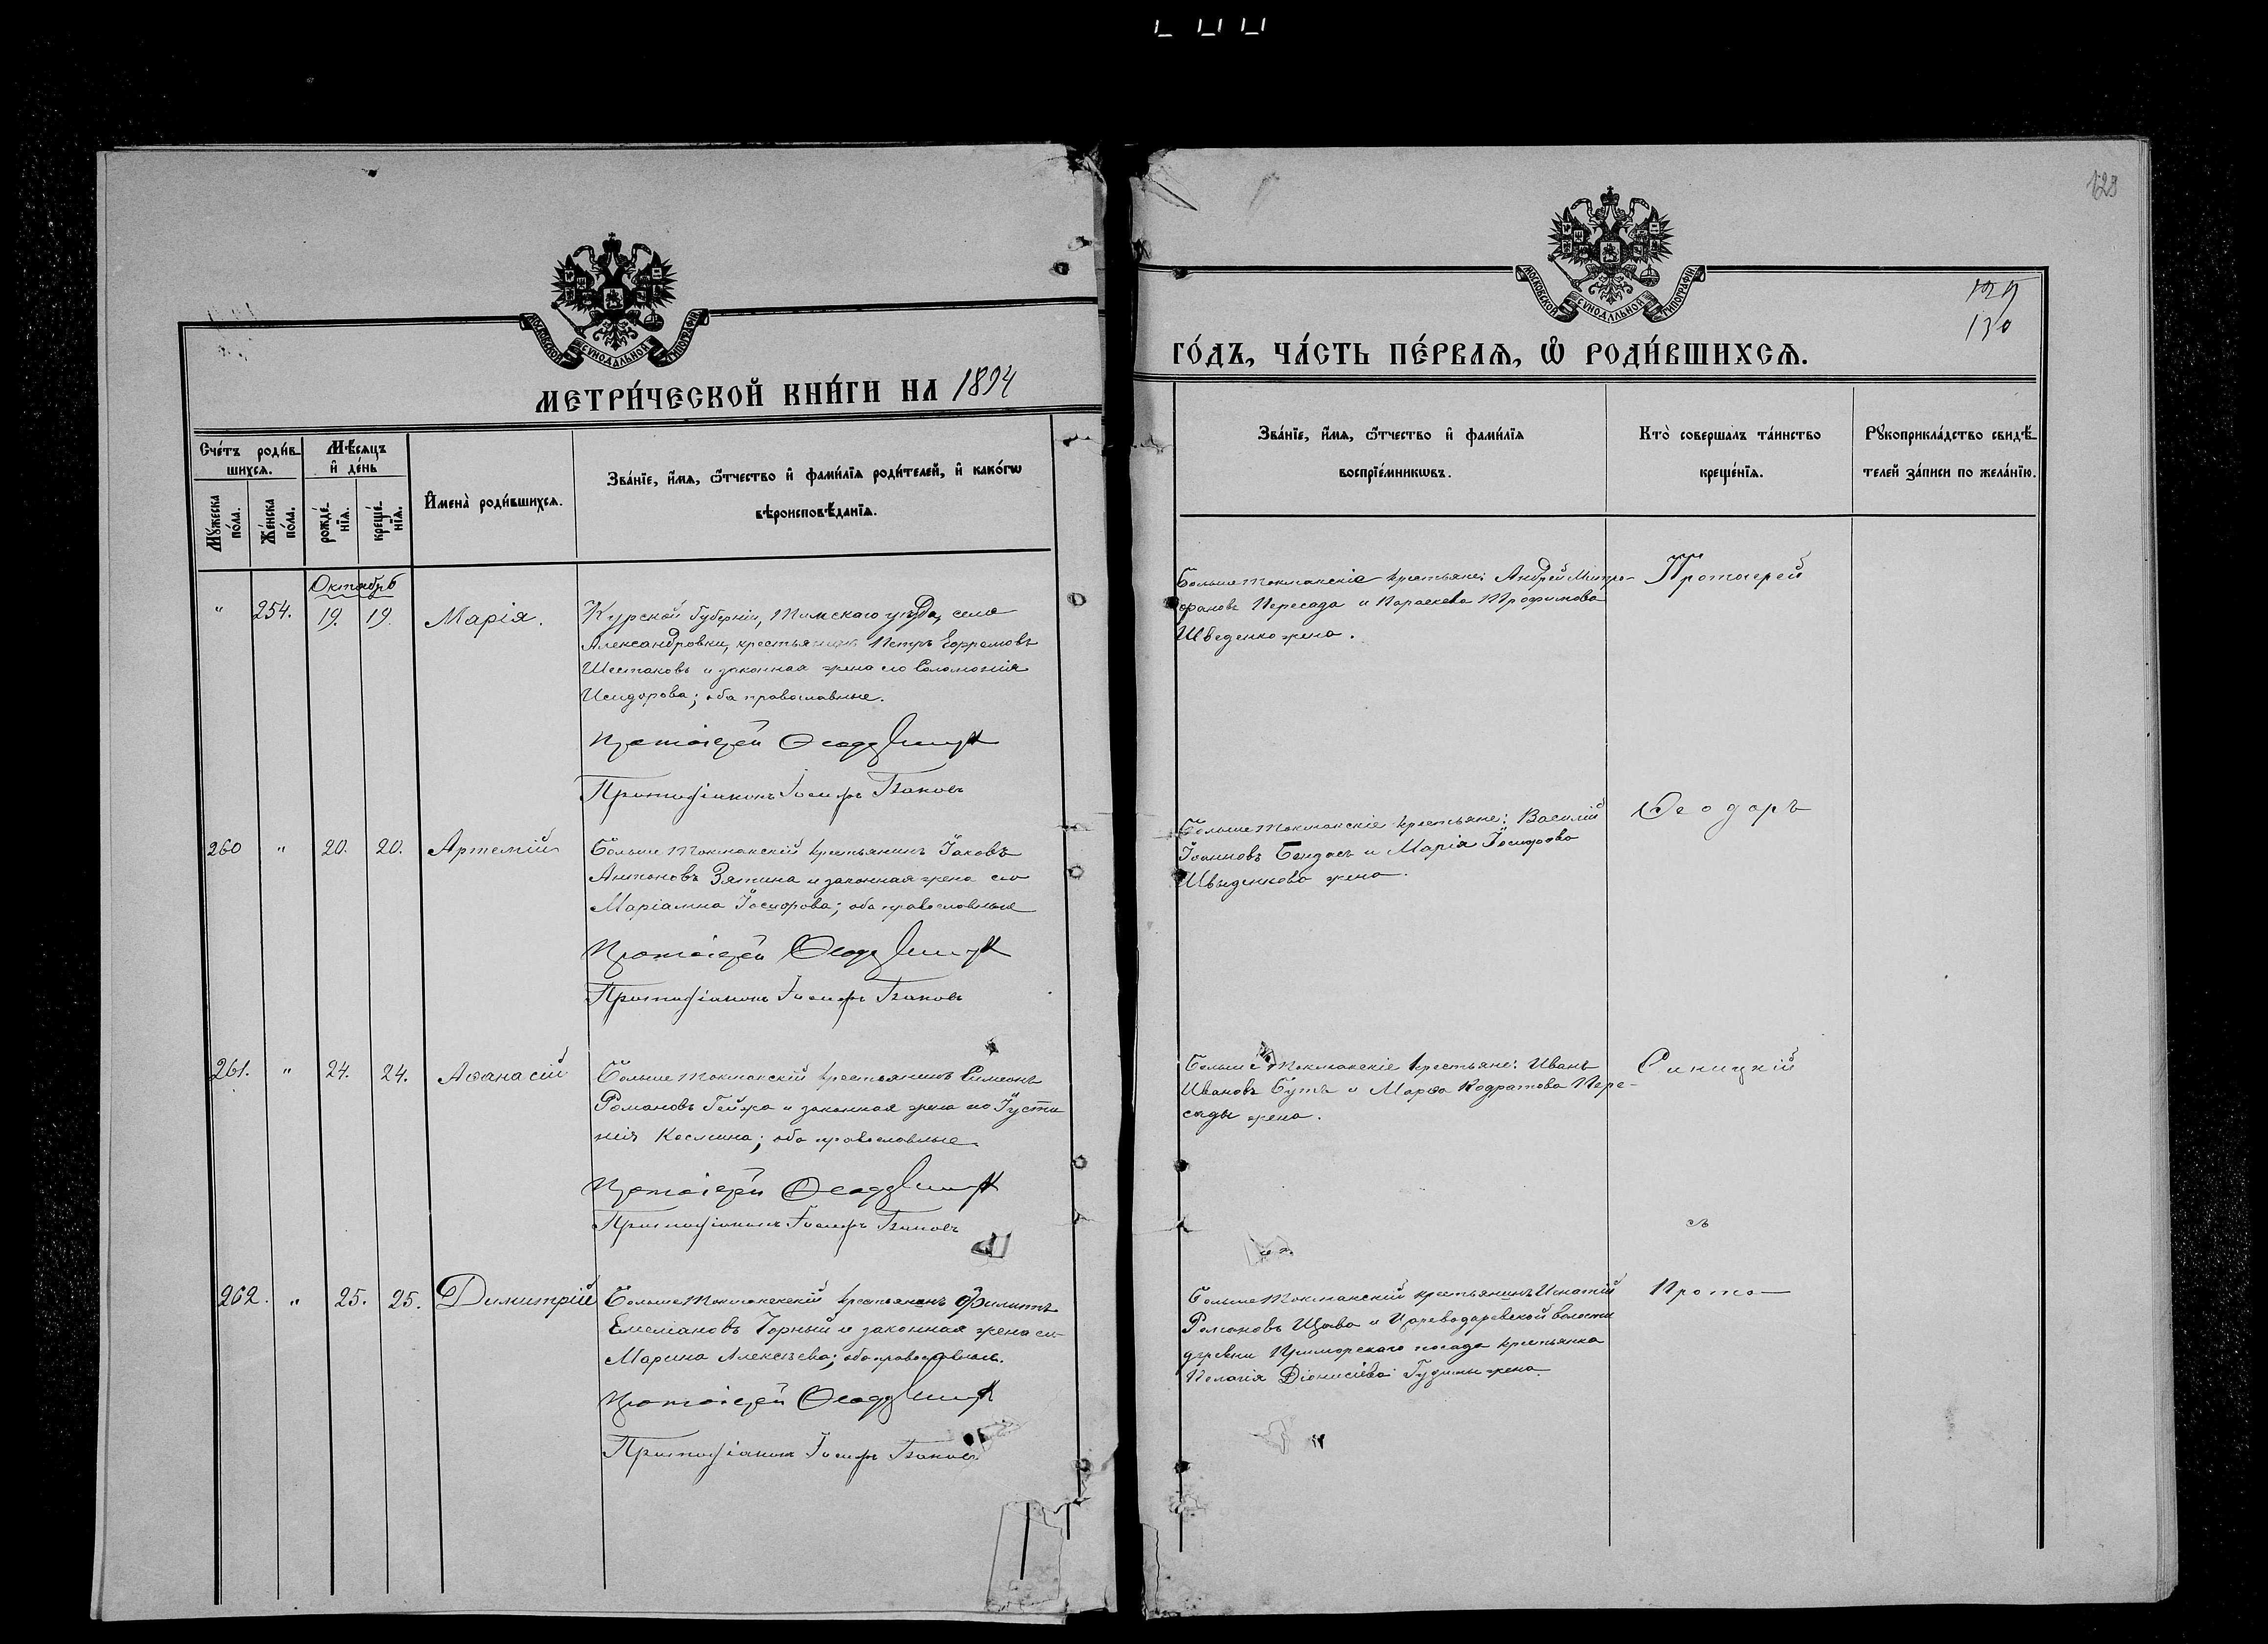 МОСКОВСКОЙ СѴНОДАЛЬНОЙ ТИПОГРАФІИ
МЕТРИ́ЧЕСКОЙ КНИ́ГИ НА 1894
Сче́тъ роди́в-
шихсѧ.
Мѣ́сѧцъ
и҆ де́нь
Мꙋ́жеска
по́ла.
Же́нска
по́ла.
рожде́-
нїѧ.
креще́-
нїѧ.
И҆мена̀ роди́вшихсѧ.
Зва́нїе, и҆́мѧ, ѻ҆́тчество и҆ фами́лїѧ роди́телей, и҆ како́гѡ
вѣроисповѣ́данїѧ.
Октябрь
" 254. 19. 19. Марія.
Курской Губерніи, Тимскаго уѣзда, села
Александровки, крестьянинъ Петръ Ефремовъ
Шестаковъ и законная жена его Соломонія
Исидорова; оба православные.
Протоіерей Ѳеодоръ
Протодіаконъ Іосифъ
260 " 20. 20. Артемій
Больше Токмакскій крестьянинъ Іаковъ
Антоновъ Зятина и законная жена его
Маріамна Ісидорова; оба православные
Протоіерей Ѳеодоръ
Протодіаконъ Іосифъ
261. " 24. 24. Аѳанасій
Больше Токмакскій крестьянинъ Симеонъ
Романовъ и законная жена его Іусти
нія Космина; оба православные.
Протоіерей Ѳеодоръ
Протодіаконъ Іосифъ
262. " 25. 25. Димитрій
Больше Токмакскій крестьянинъ Филиппъ
Емеліановъ Горный и законная жена его
Марина Алексѣева; оба православные.
Протоіерей Ѳеодоръ
Протодіаконъ Іосифъ
129
130
МОСКОВСКОЙ СѴНОДАЛЬНОЙ ТИПОГРАФІИ
ГО́ДЪ, ЧА́СТЬ ПЕ́РВАѦ, Ѡ҆ РОДИ́ВШИХСѦ.
Зва́нїе, и҆́мѧ, ѻ҆́тчество и҆ фами́лїѧ
воспрїе́мникѡвъ.
Кто̀ соверша́лъ та́инство
креще́нїѧ.
Рꙋкоприкла́дство свидѣ́-
телей за́писи по жела́нїю.
Больше Токмакскіе крестьяне: Андрей Митро-
фановъ Пересада и Параскева Трофимова
Шведенко жена.
Протоіерей
Больше Токмакскіе крестьяне: Василій
Іоанновъ Бондасъ и Марія Ісидорова
Швыденкова жена.
Ѳеодоръ
Больше Токмакскіе крестьяне: Иванъ
Ивановъ Бутъ и Марѳа Кодратова Пере-
сады жена.
Синицкій
съ
Больше Токмакскій крестьянинъ Игнатій
Романовъ Щава и Цареводаровской волости
деревни Приморскаго посада крестьянка
Пелагія Діонисіева жена.
Прото-